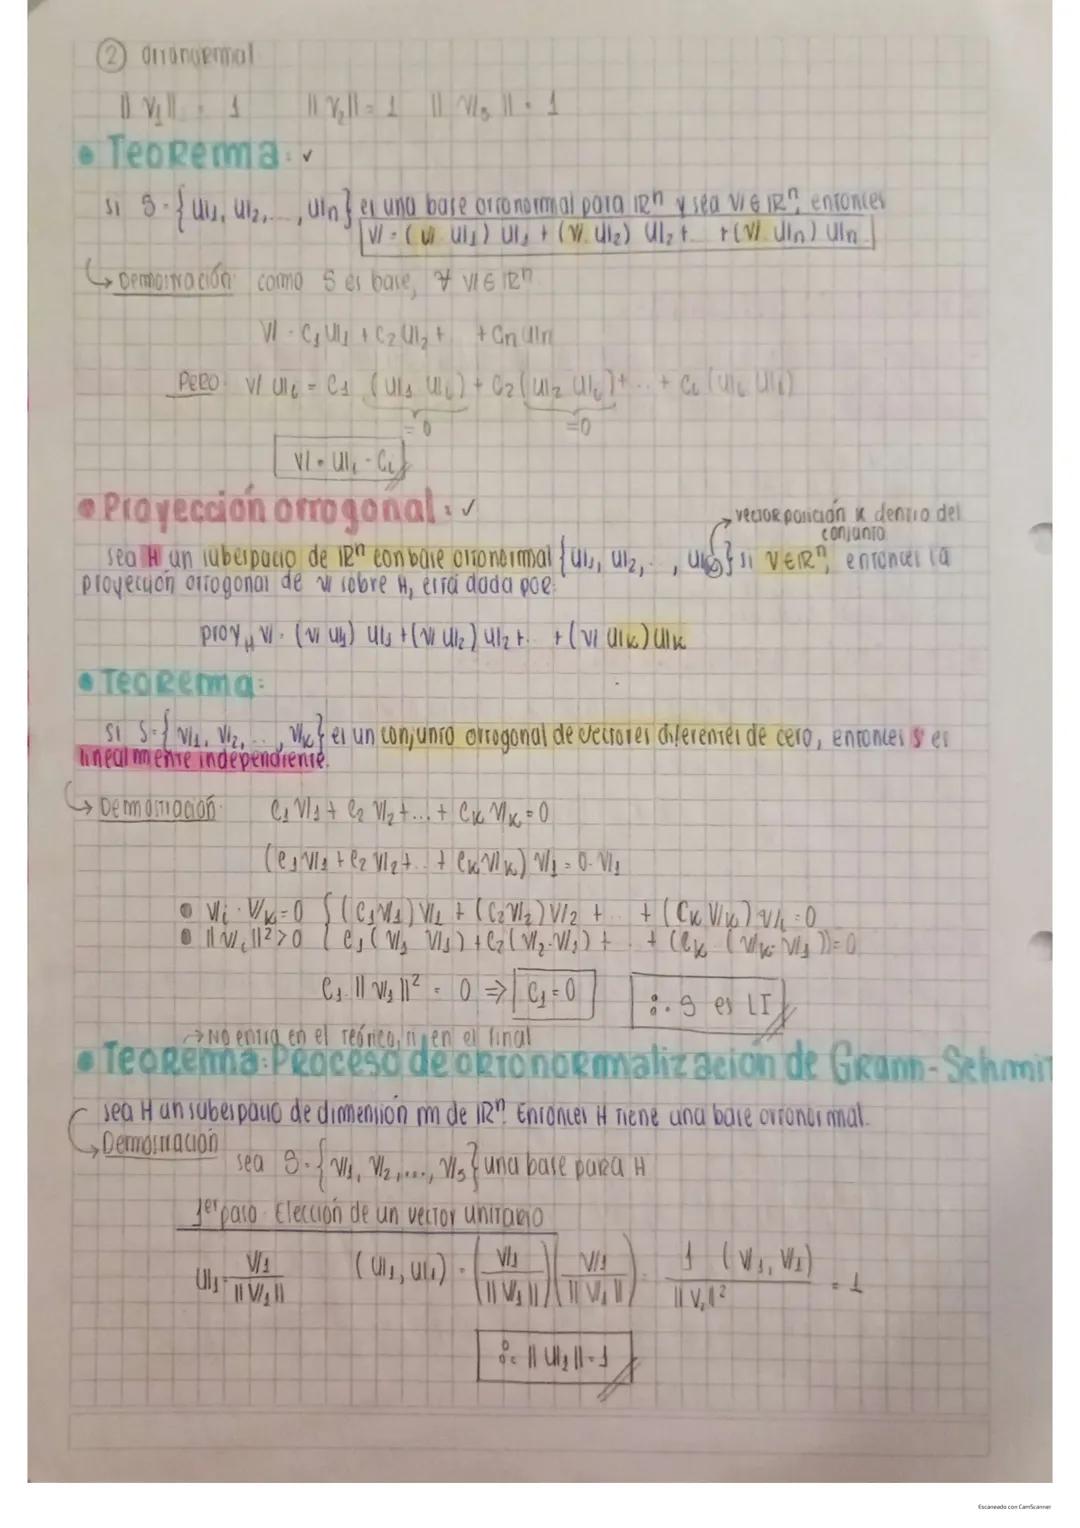 ② Ortonormal
|| V₁ || = 1 || V₂ || = 1 || V₃ || = 1
• Teorema: ✓
si S = { u₁, u₂, ..., uₙ } es una base ortonormal para ℝⁿ y sea V ∈ ℝⁿ, entonces
V = (V · u₁) u₁ + (V · u₂) u₂ + ... + (V · uₙ) uₙ
↳ Demostración: como S es base, ∀ V ∈ ℝⁿ
V = C₁ u₁ + C₂ u₂ + + Cₙ uₙ
Pero: V uᵢ = C₁ (u₁ uᵢ) + C₂ (u₂ uᵢ) + ... + Cᵢ (uᵢ uᵢ)
= 0 = 0
V · uᵢ = Cᵢ
• Proyección ortogonal: ✓
→ vector posición K dentro del
conjunto
sea H un subespacio de ℝⁿ con base ortonormal { u₁, u₂, ..., uₖ } si V ∈ ℝⁿ, entonces la
proyección ortogonal de V sobre H, está dada por:
proy_H V = (V u₁) u₁ + (V u₂) u₂ + ... + (V uₖ) uₖ
• Teorema:
si S = { V₁, V₂, ..., Vₖ } es un conjunto ortogonal de vectores diferentes de cero, entonces S es
linealmente independiente.
↳ Demostración: C₁ V₁ + C₂ V₂ + ... + Cₖ Vₖ = 0
(C₁ V₁ + C₂ V₂ + ... + Cₖ Vₖ) V₁ = 0 · V₁
• Vᵢ · Vₖ = 0 { (C₁ V₁) V₁ + (C₂ V₂) V₂ + ... + (Cₖ Vₖ) Vₖ = 0
• || Vᵢ ||² > 0 { C₁ (V₁ V₁) + C₂ (V₂ · V₁) + ... + (Cₖ (Vₖ · V₁)) = 0
C₁ · || V₁ ||² = 0 ⇒ C₁ = 0 ∴ S es LI
→ No entra en el teórico, ni en el final
• Teorema: Proceso de ortonormalización de Gramm-Schmit
sea H un subespacio de dimensión m de ℝⁿ. Entonces H tiene una base ortonormal.
↳ Demostración
sea S = { V₁, V₂, ..., V₃ } una base para H
1er paso: Elección de un vector unitario
u₁ = V₁ / || V₁ || (u₁, u₁) = (V₁ / || V₁ ||) (V₁ / || V₁ ||) = 1 (V₁, V₁) / || V₁ ||² = 1
∴ || u₁ || = 1
Escaneado con CamScanner